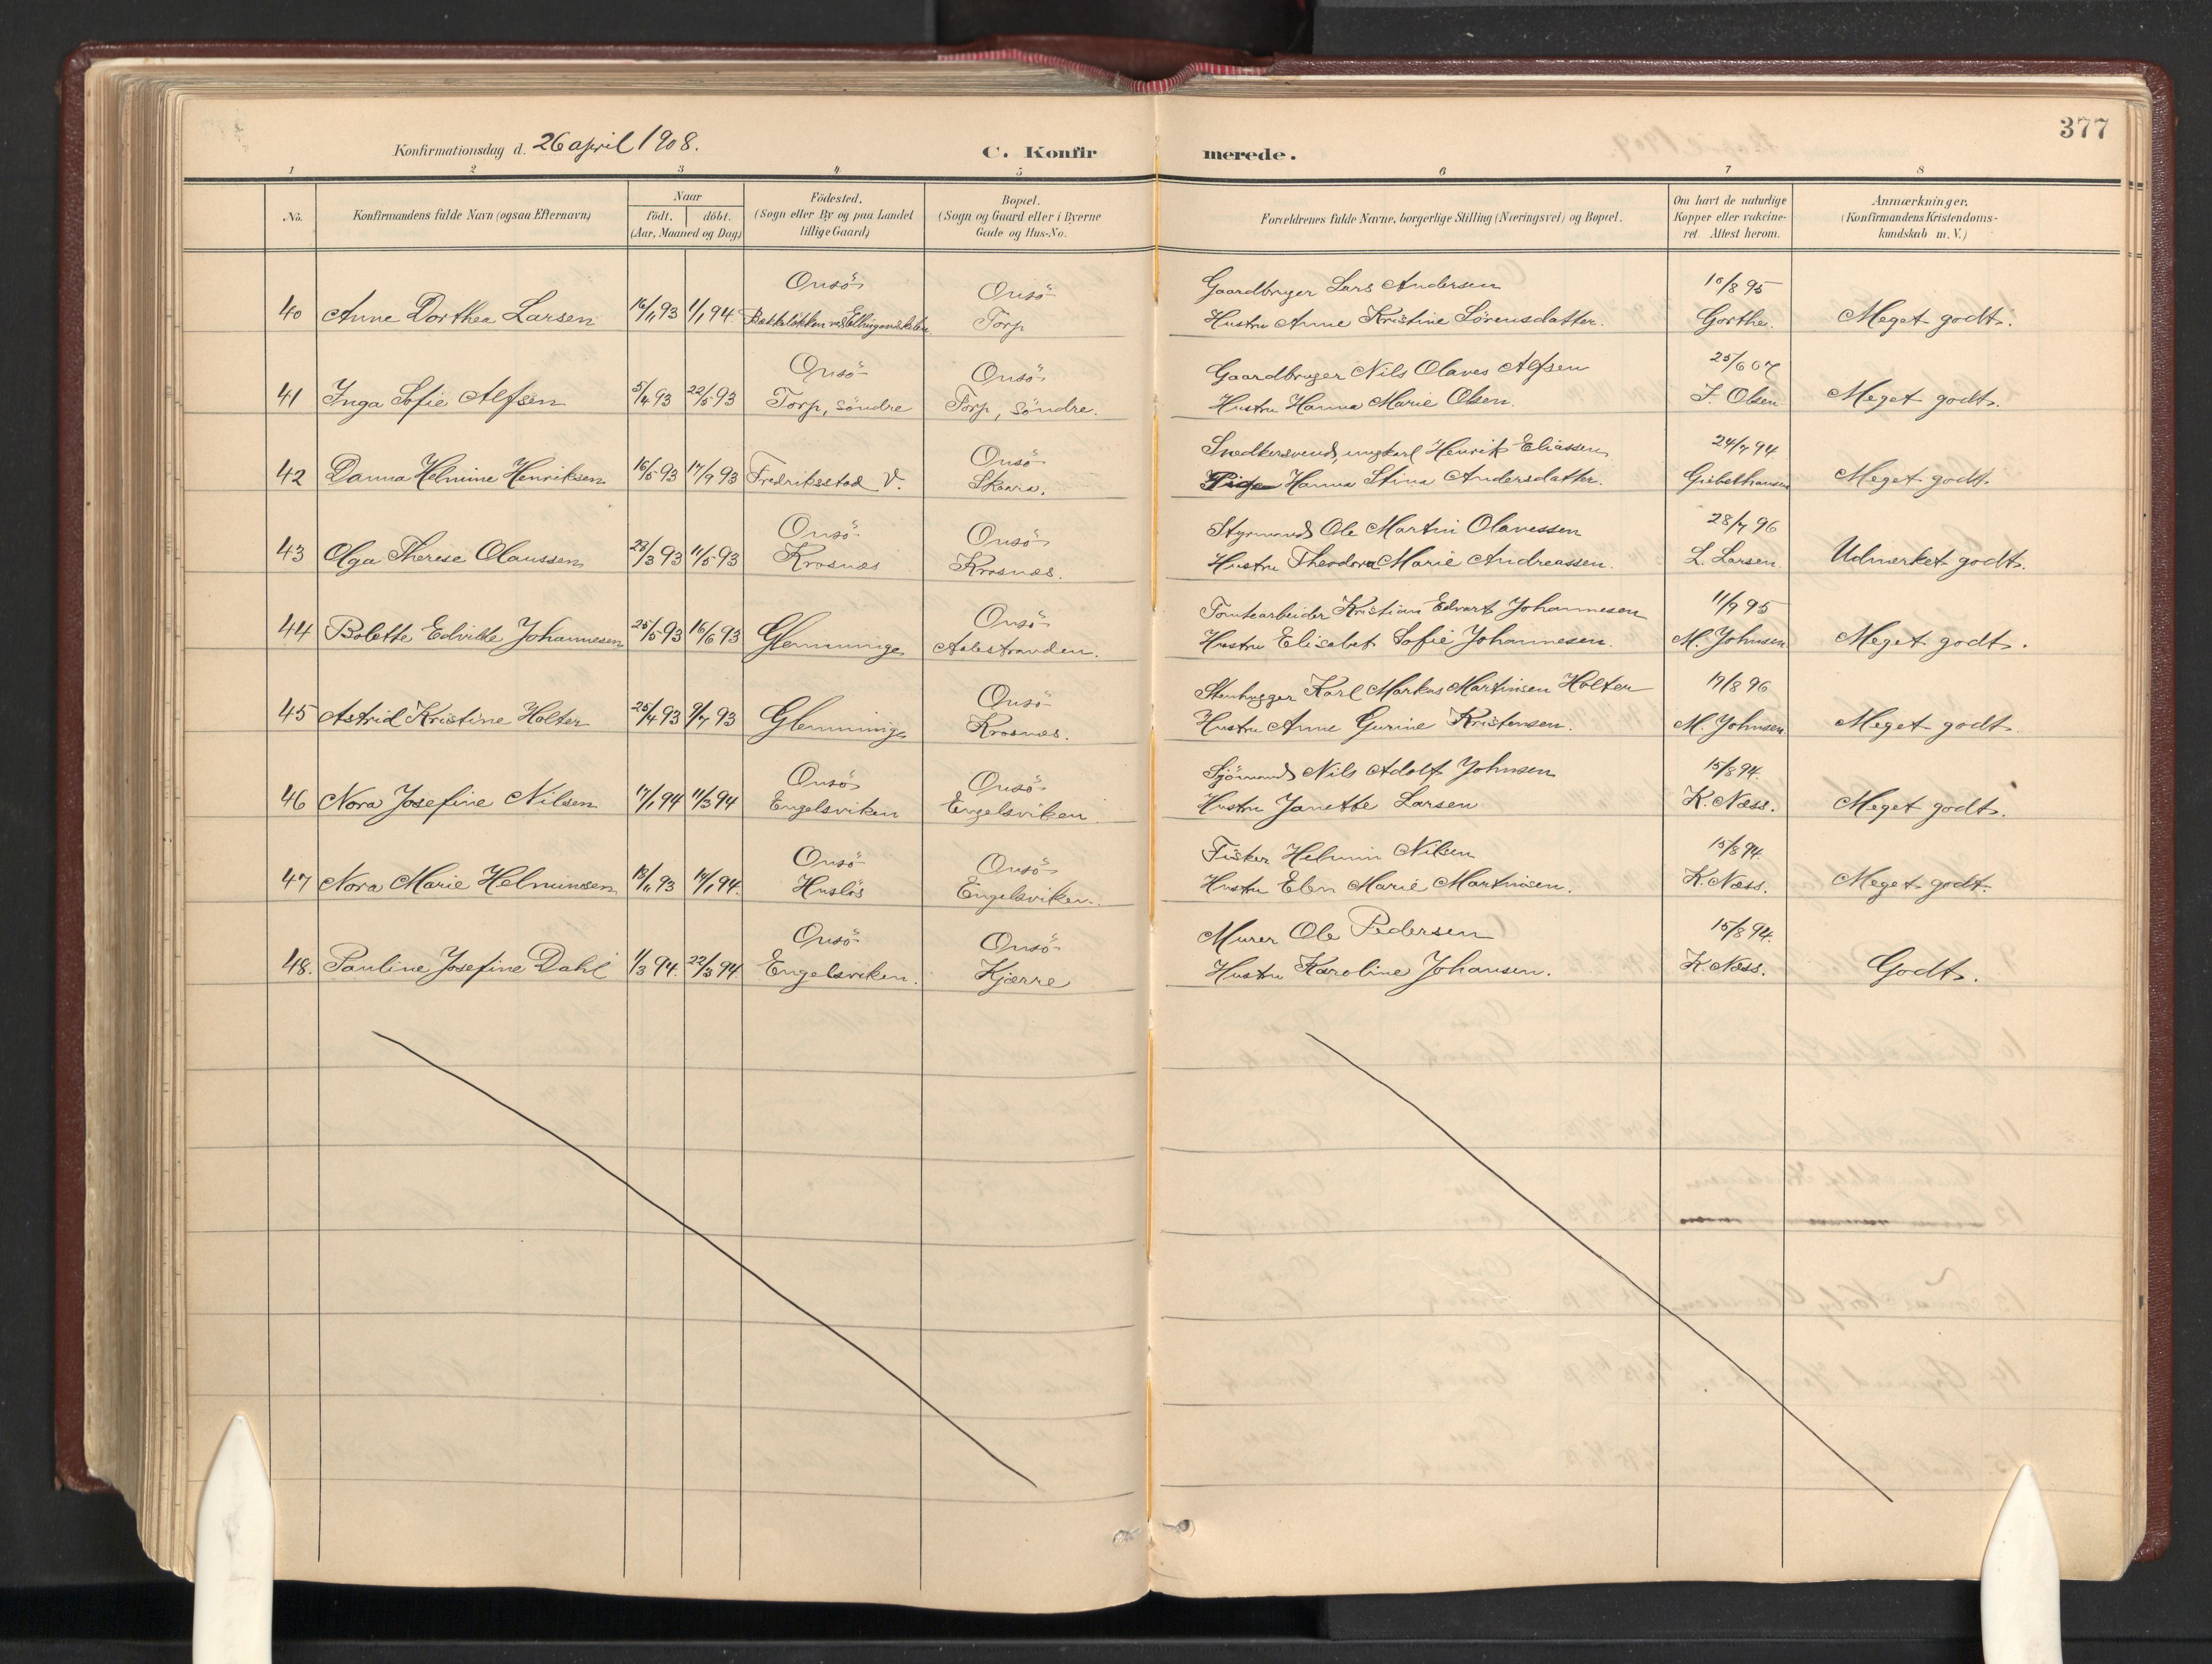 377
Konfirmationsdag d. 26 april 1908.
C. Konfirmerede.
1 2 3 4 5 6 7 8
No.
Konfirmandens fulde Navn (ogsaa Efternavn)
Naar
födt. döbt.
(Aar, Maaned og Dag)
Födested.
(Sogn eller By og paa Landet
tillige Gaard)
Bopæl.
(Sogn og Gaard eller i Byerne
Gade og Hus-No.
Forældrenes fulde Navne, borgerlige Stilling (Næringsvei) og Bopæl.
Om havt de naturlige
Kopper eller vakcine-
ret. Attest herom.
Anmærkninger.
(Konfirmandens Kristendoms-
kundskab m. V.)
Onsö Onsö Gaardbruger Lars Andersen 10/8 95
40 Anne Dorthea Larsen 16/11 93 1/1 94. Torp Hustru Anne Kristine Sörensdatter. Gorthe. Meget godt.
Onsö Onsö Gaardbruger Nils Olaves Alfsen 25/6 07
41 Inga Sofie Alfsen 5/4 93 22/5 93 Torp, söndre Torp, söndre. Hustru Hanna Marie Olsen. J. Olsen Meget godt.
Onsö Snedkersvend, ungkarl Henrik Eliassen 24/7 94
42 Danna Helmine Henriksen 16/5 93 17/9 93 Fredriksstad V. Skaara. Pige Hanna Stina Andersdatter. Giebelhausen Meget godt.
Onsö Onsö Styrmand Ole Martin Olavessen 28/7 96
43 Olga Therese Olaussen 28/3 93 11/5 93 Krosnæs Krosnæs. Hustru Theodora Marie Andreassen. L. Larsen. Udmerket godt.
Onsö Tomtearbeider Kristian Edvart Johannesen 11/9 95
44 Bolette Edvilde Johannesen 25/5 93 16/6 93 Glemminge Aalestranden. Hustru Elisabet Sofie Johannesen. M. Johnsen Meget godt.
Onsö Stenhugger Karl Markus Martinsen Holter 19/8 96
45 Astrid Kristine Holter 25/4 93 9/7 93 Glemminge Krosnæs. Hustru Anne Gurine Kristensen. M. Johnsen. Meget godt.
Onsö Onsö Sjömand Nils Adolf Johnsen 15/8 94.
46 Nora Josefine Nilsen 17/1 94 11/3 94 Engelsviken Engelsviken. Hustru Janette Larsen K. Næss. Meget godt.
Onsö Onsö Fisker Helmin Nilsen 15/8 94.
47 Nora Marie Helminsen 18/11 93 14/1 94. Huslös Engelsviken. Hustru Elen Marie Martinsen. K. Næss. Meget godt.
Onsö Onsö Murer Ole Pedersen 15/8 94.
48. Pauline Josefine Dahl 1/3 94. 22/3 94 Engelsviken. Kjærre Hustru Karoline Johansen. K. Næss. Godt.